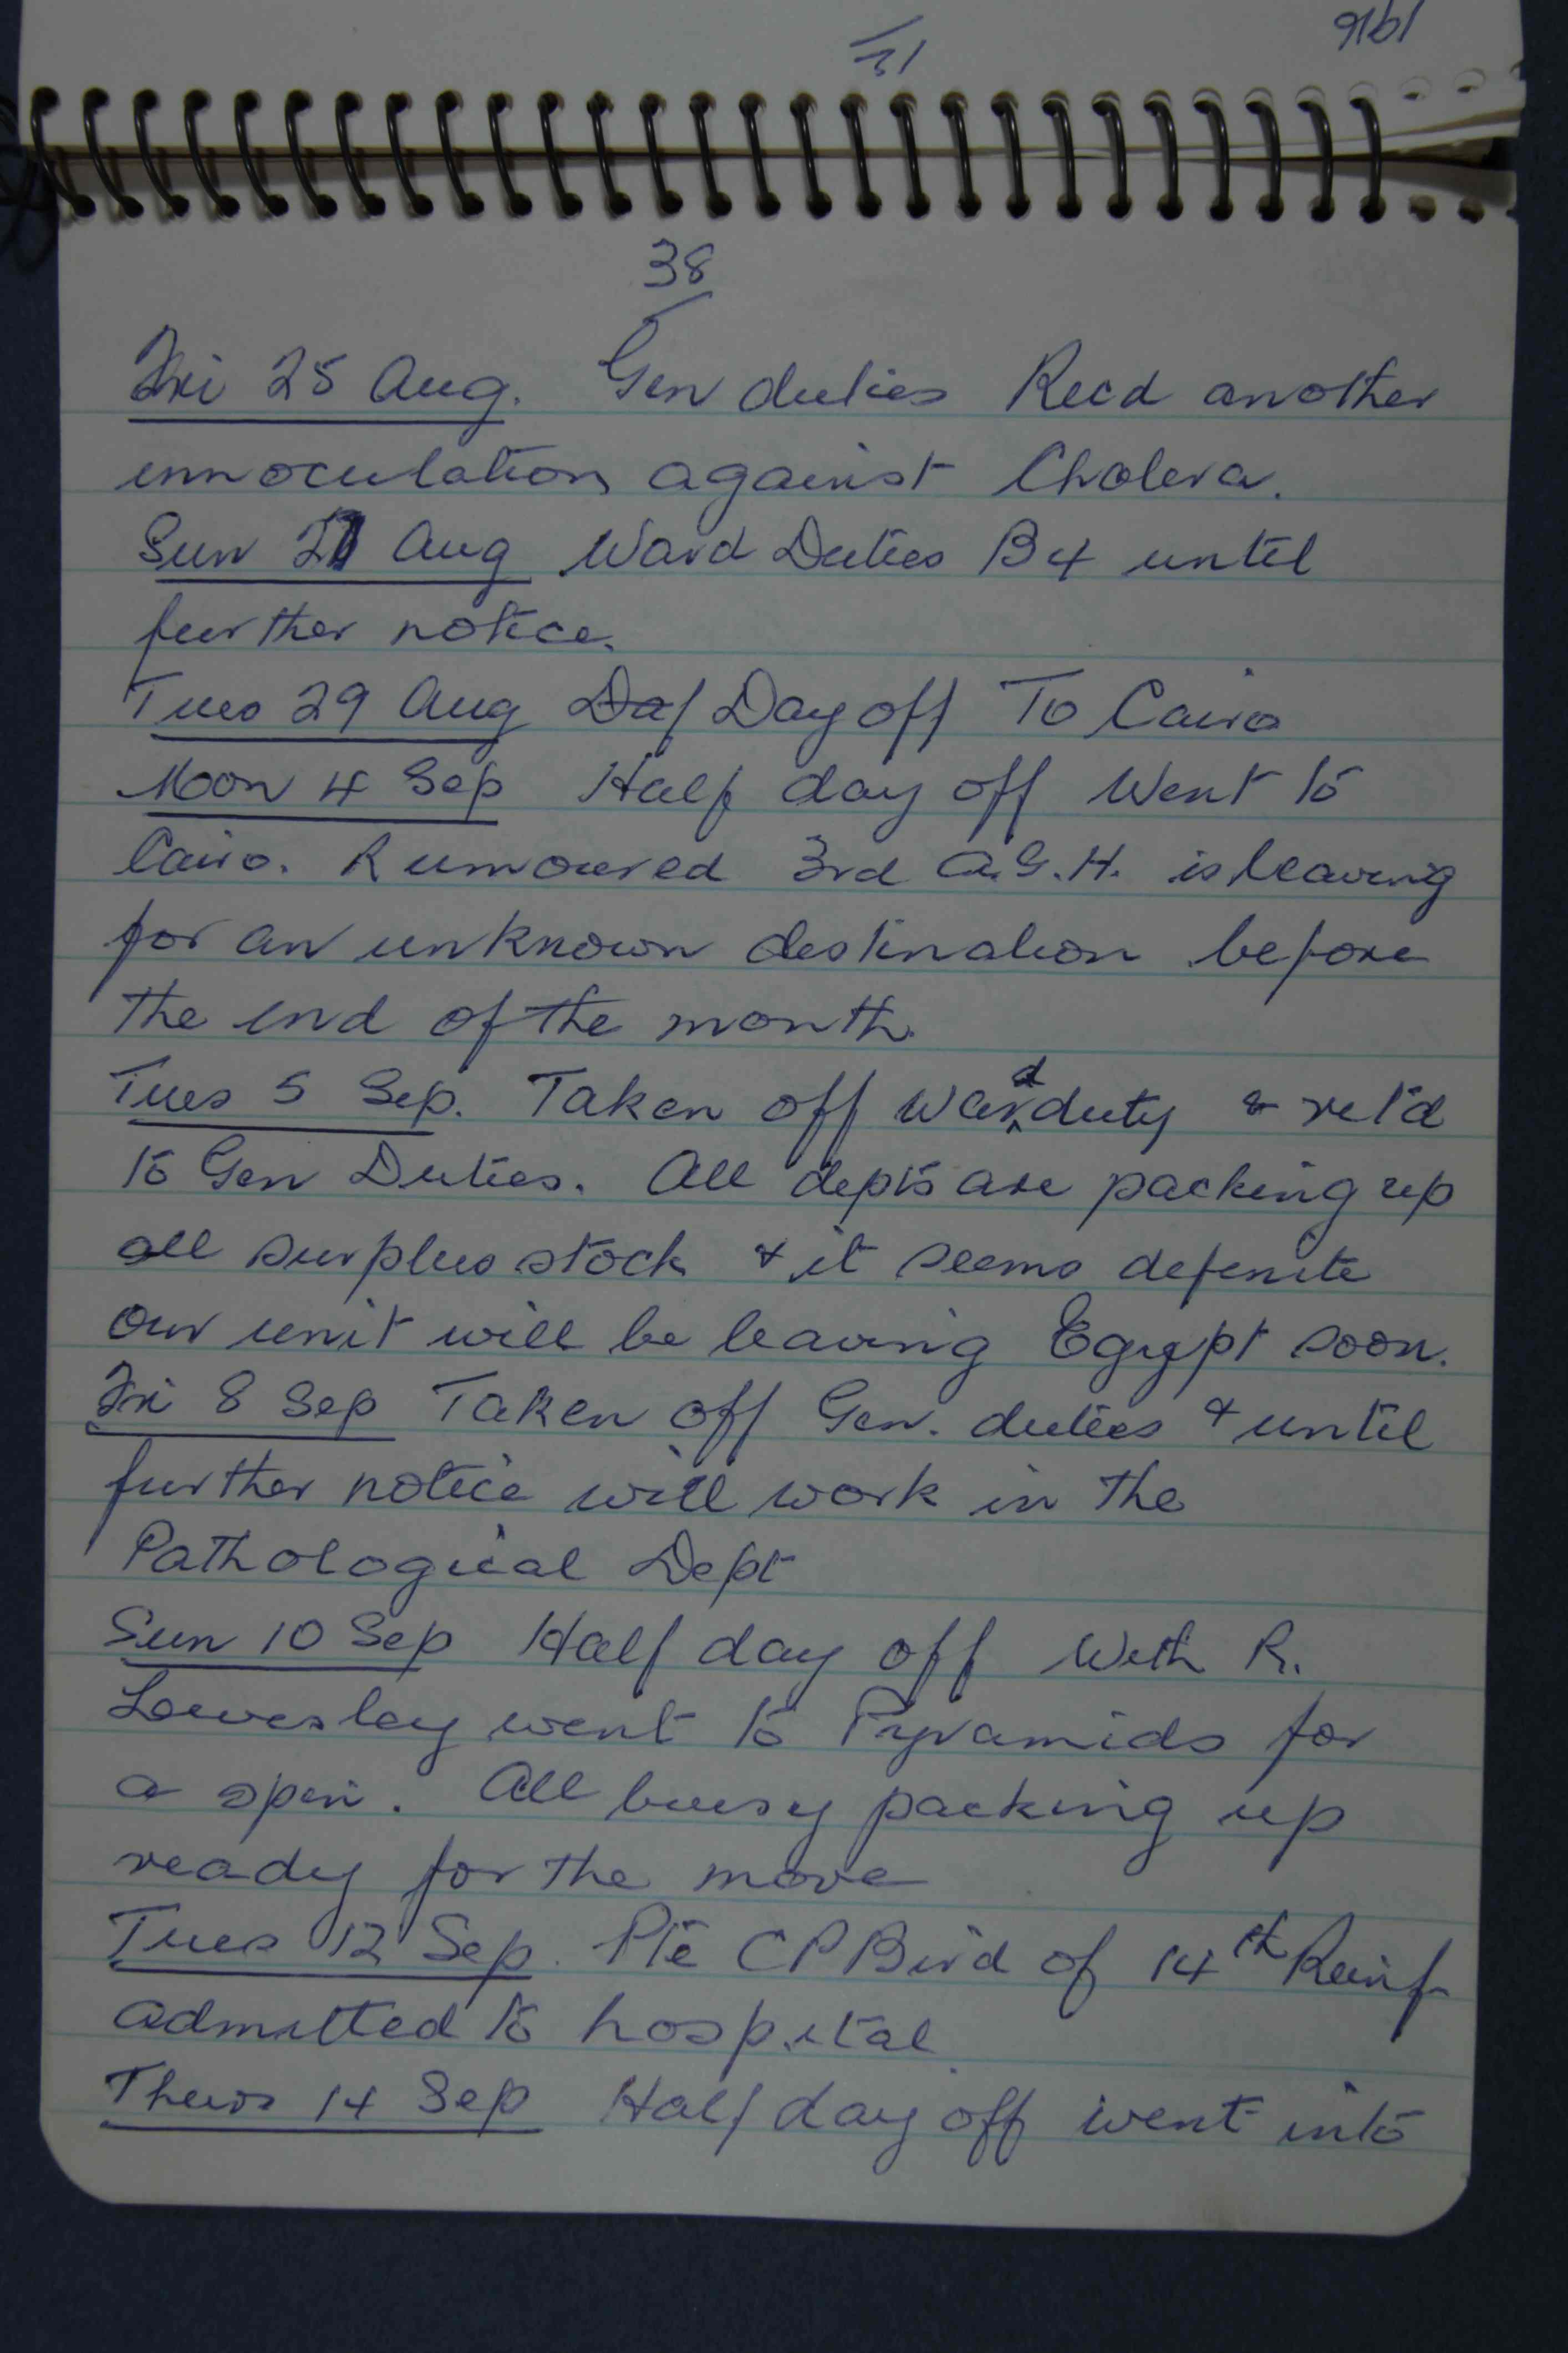 1916
38
Fri 25 Aug. Gen duties Recd another
innoculation against Cholera.
Sun 27 Aug Ward Duties B4 until
further notice.
Tues 29 Aug Day Day off To Cairo
Moon 4 Sep Half day off Went to
Cairo. Rumoured 3rd A.G.H. is leaving
for an unknown destination before
the end of the month.
Tues 5 Sep. Taken off Ward duty & ret'd
to Gen Duties. All depts are packing up
all surplus stock & it seems definite
our unit will be leaving Egypt soon.
Fri 8 Sep Taken off Gen. duties & until
further notice will work in the
Pathological Dept
Sun 10 Sep Half day off With R.
Lowesley went to Pyramids for
a spin. All busy packing up
ready for the move
Tues 12 Sep. Pte C P Bird of 14th Reinf
admitted to hospital
Thurs 14 Sep Half day off went into